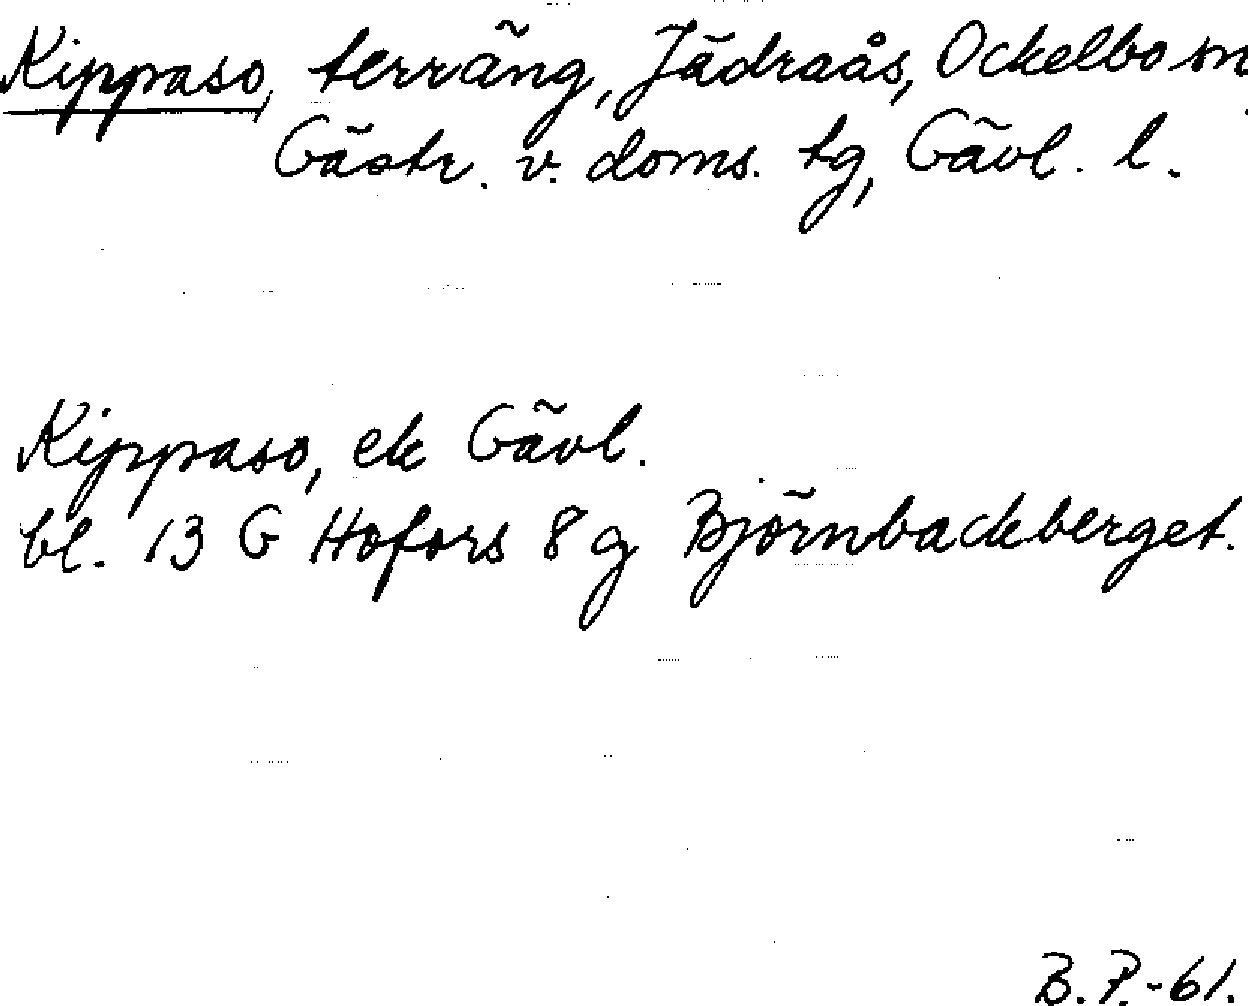 Kippaso, terräng, Jädraås, Ockelbo sn,
Gästr. v. doms. tg, Gävl. l.
Kippaso, ek Gävl.
bl. 13 G Hofors 8 g Björnbackberget.
B. P. -61.